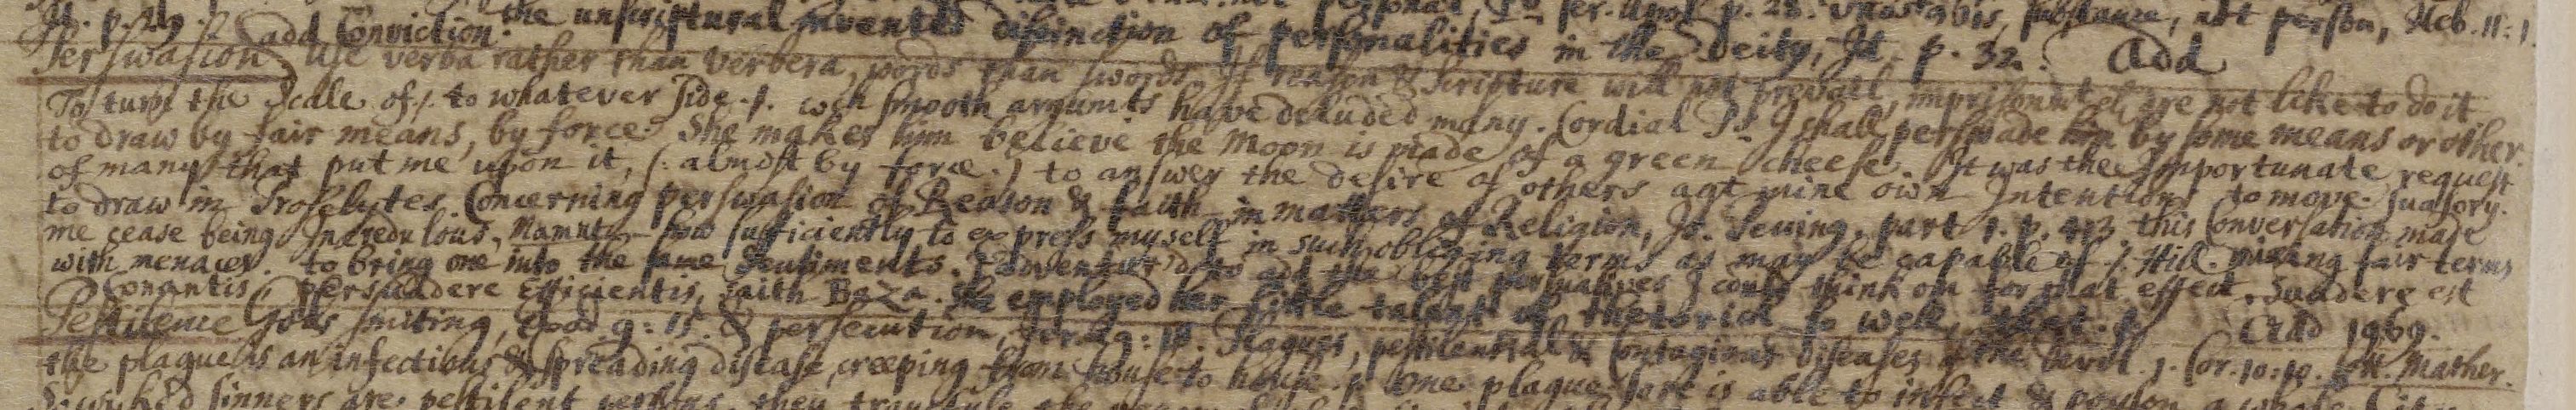 Id. p. 29. the unscriptural invented distinction of personalities in the Deity, Id. p. 32. Add
add Conviction.
Perswasion. Use verba rather than verbera, words than swords. If reason & Scripture will not prevail, imprisonmt &c are not like to do it.
To turn the Scale of /. to whatever side .p. wch smooth argumts have deluded many. Cordial I shall perswade him by some means or other.
to draw by fair means, by force. She makes him believe the Moon is made of a green cheese. It was the Importunate request
of many that put me upon it, (: almost by force :) to answer the desire of others agt mine own Intention. to move. Suasory.
to draw in Proselytes. Concerning perswasion of Reason & faith in matters of Religion, part 1. p. 413. this Conversation made
me cease being Incredulous, how sufficiently to express myself in such obliging terms as may be capable of /. Hill. mixing fair terms
with menaces. to bring one into the same Sentiments. I adventur'd to add the best perswatives I could think on for that effect. Suadere est
Conantis, persuadere Efficientis, saith Beza. She employed her little talent of rhetorick so well, that .p.
Pestilence Gods smiting, Exod. 9: 15. & persecution, Plagues, pestilential & Contagious diseases of the Devil. 1. Cor. 10: 10. Cott. Mather. Add 1969.
the plague is an infectious & spreading disease, creeping from house to house .p. One plague sore is able to infect & poyson a whole
& wicked sinners are pestilent persons, they